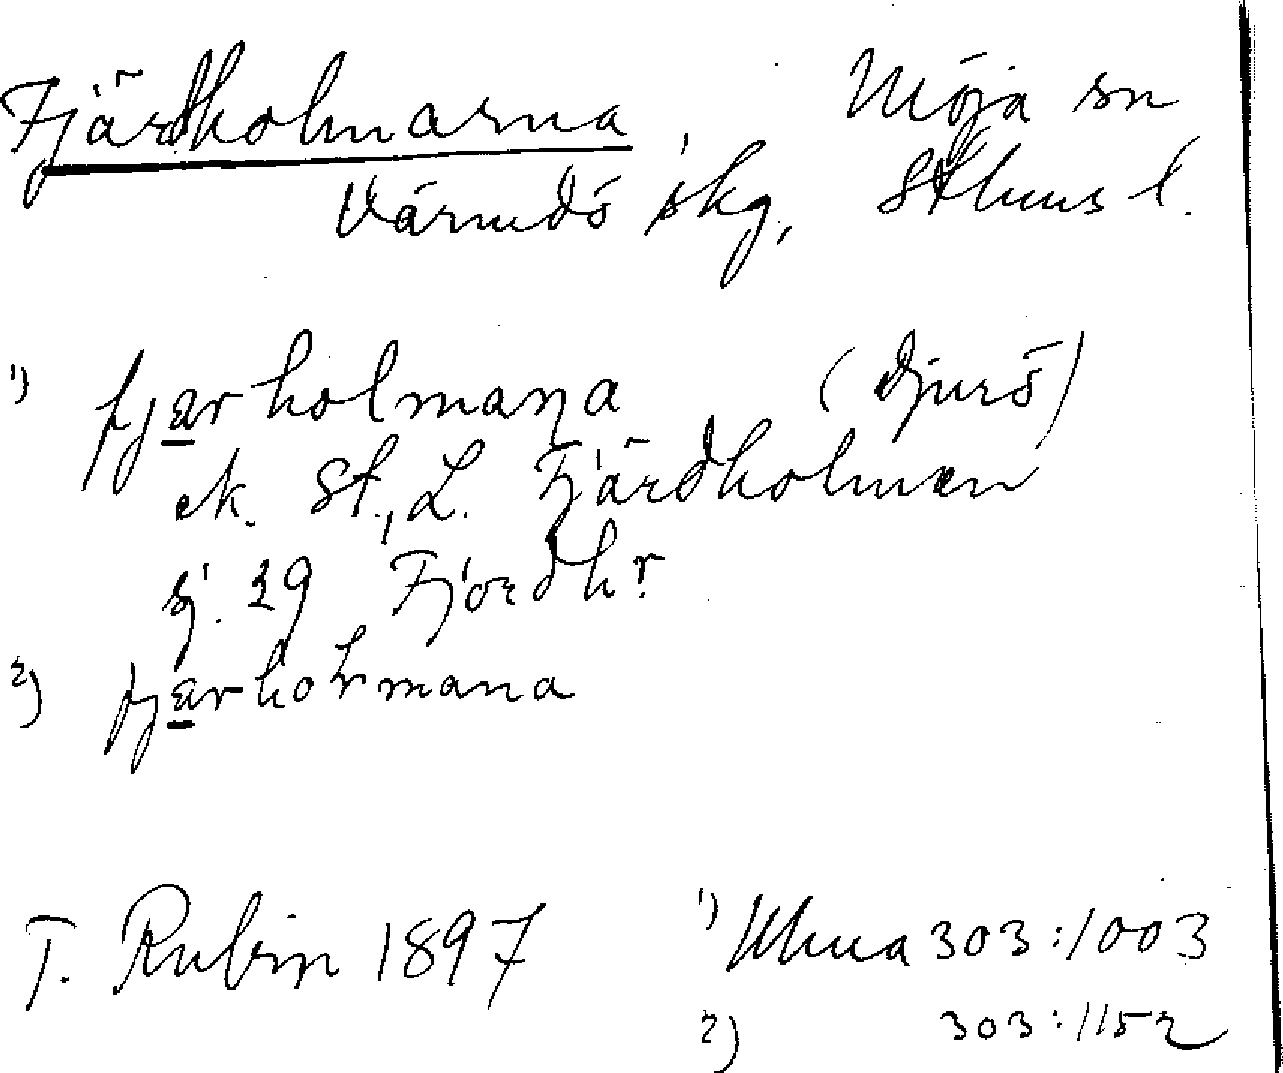 Fjärdholmarna, Möja sn
Värmdö skg, Sthms l.
1) fjarholmaṇa (Djurö)
ek. St., L. Fjärdholmen
sj. 29 Fjordhr
2) fjarholmana
T. Rubin 1897 1) Uhua 303:1003
2) 303:1152